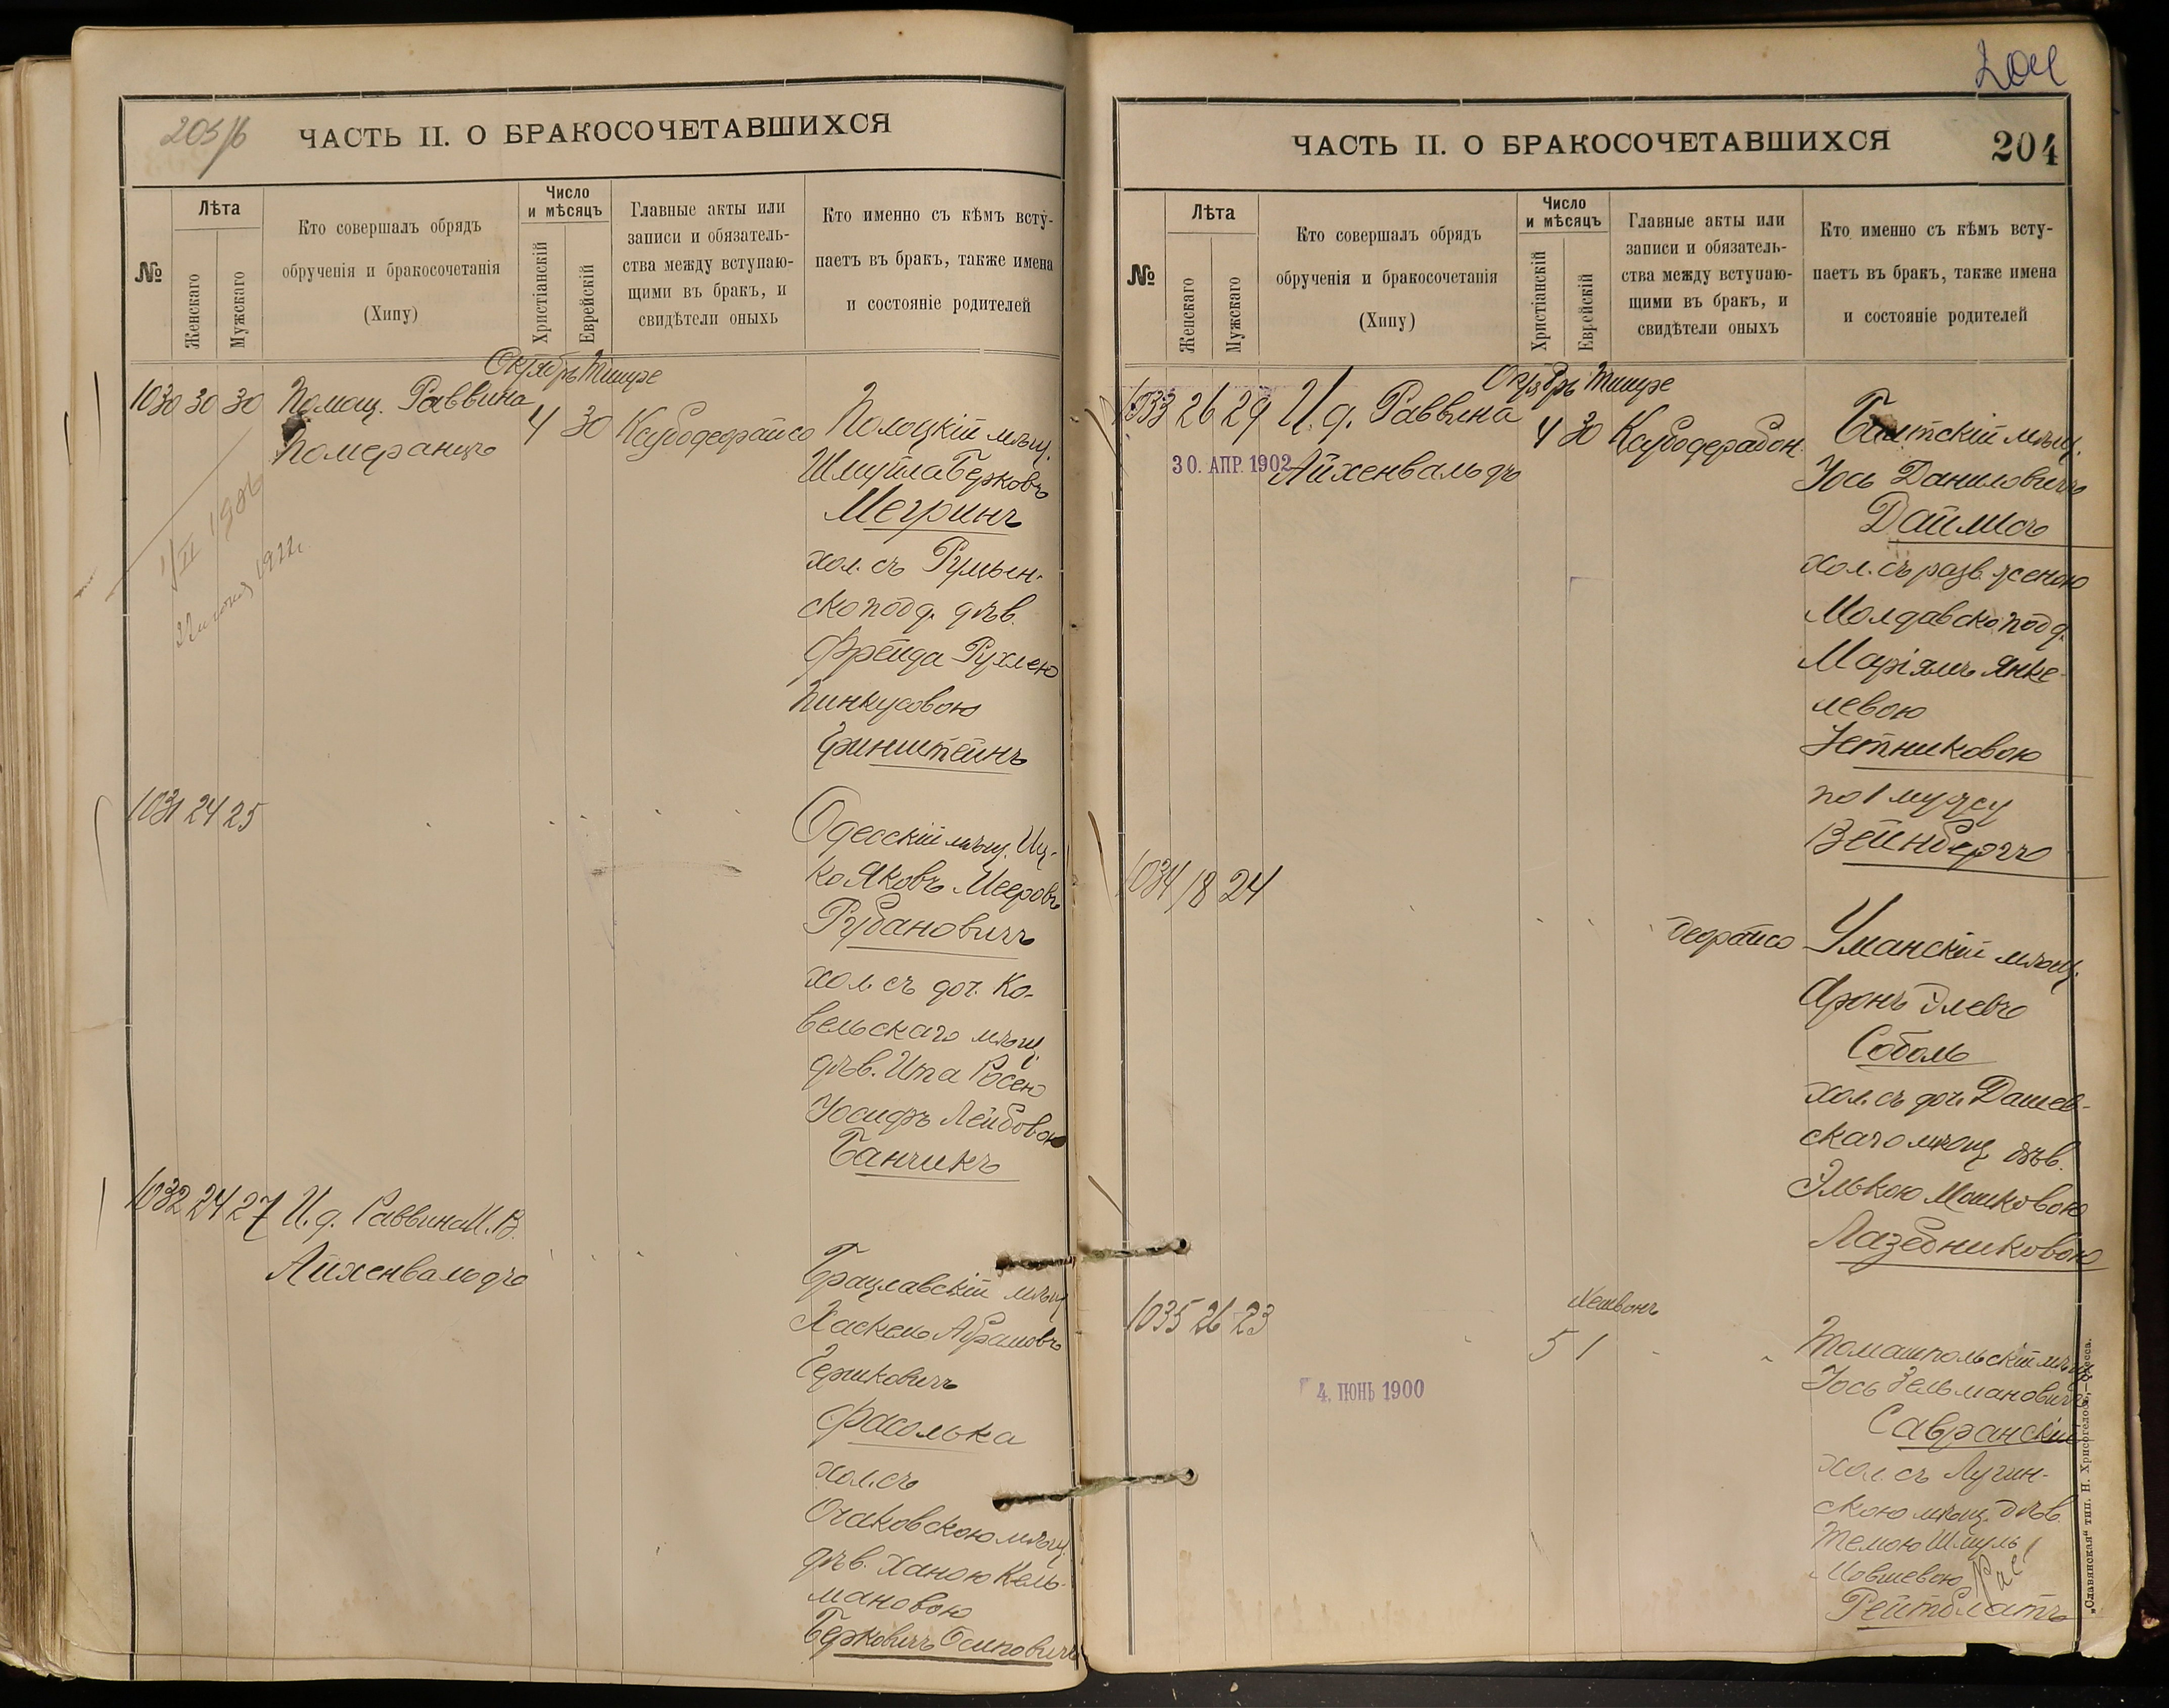 203/б
ЧАСТЬ II. О БРАКОСОЧЕТАВШИХСЯ
№
Лѣта
Женскаго
Мужскаго
Кто совершалъ обрядъ
обрученія и бракосочетанія
(Хипу)
Число
и мѣсяцъ
Христіанскій
Еврейскій
Главные акты или
записи и обязатель-
ства между вступаю-
щими въ бракъ, и
свидѣтели оныхъ
Кто именно съ кѣмъ всту-
паетъ въ бракъ, также имена
и состояніе родителей
Октябрь Тишре
1030 30 30 Помощ. Раввина 4 30 Ксубодерайсо
Померанцъ
Полоцкій мѣщ.
Шмуйла Берковъ
Мегринъ
хол. съ Румын-
скопод д. дѣв.
Фрейда Рухлею
Пинкусовою
Гринштейнъ
1031 24 25
Одесскій мѣщ. Иц-
ко Яковъ Мееровъ
Рубановичъ
хол. съ доч. Ко-
вельскаго мѣщ.
дѣв. Ита Росею
Іосифъ Лейбовою
Банчикъ
1032 24 27 И. д. Раввина М. В.
Айхенвальдъ
Брацлавскій мѣщ
Хаскель Абрамовъ
Гершковичъ
Фасолька
хол. съ
Очаковскою мѣщ.
дѣв. Ханою Кель-
мановою
Берковичъ Осиповичъ
204
ЧАСТЬ II. О БРАКОСОЧЕТАВШИХСЯ
204
№
Лѣта
Женскаго
Мужскаго
Кто совершалъ обрядъ
обрученія и бракосочетанія
(Хипу)
Число
и мѣсяцъ
Христіанскій
Еврейскій
Главные акты или
записи и обязатель-
ства между вступаю-
щими въ бракъ, и
свидѣтели оныхъ
Кто именно съ кѣмъ всту-
паетъ въ бракъ, также имена
и состояніе родителей
Октябрь Тишре
1033 26 29 И. д. Раввина 4 30 Ксубодерабон.
30. АПР. 1902
Айхенвальдъ
мѣщ.
Іось Даниловичъ
Даймисъ
хол. съ разв. женою
Молдавскопод д.
Маріямъ Янке-
левою
Зетниковою
по 1 мужу
Вейнбергъ
1034 18 24
дерайсо
Уманскій мѣщ.
Аронъ Элевъ
Соболь
хол. съ доч. Дашев-
скаго мѣщ. дѣв.
Элькою Мошковою
Лазебниковою
Хешвонъ
1035 26 23 5 1
4. ІЮНЬ 1900
Томашпольскій мѣщ
Іось Зельмановичъ
Савранскій
хол. съ Лугин-
скою мѣщ. дѣв.
Темою Шмуль
Мовшевою
Рейтблатъ
„Славянская“ тип. Н. Хрисогелосъ,—Одесса.